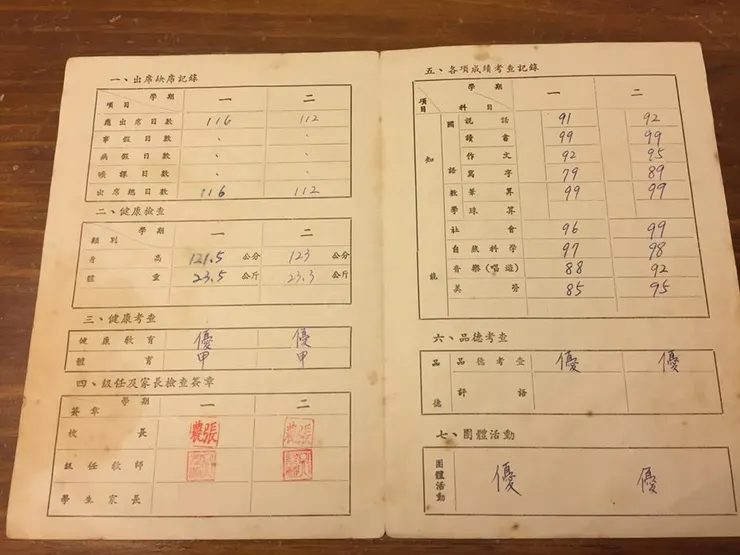 一、出席缺席記錄
學期 一 二
項目
應出席日數 116 112
事假日數 · ·
病假日數 · ·
曠課日數 · ·
出席總日數 116 112
二、健康檢查
學期 一 二
類別
身高 121.5 公分 123 公分
體重 23.5 公斤 23.3 公斤
三、健康考查
健康教育 優 優
體育 甲 甲
四、級任及家長檢查簽章
學期 一 二
簽章
校長 張農 張農
級任教師
學生家長
五、各項成績考查記錄
學期 一 二
項目 科目
知能
國語 說話 91 92
讀書 99 99
作文 92 95
寫字 79 89
數學 筆算 99 99
珠算
社會 96 99
自然科學 97 98
音樂(唱遊) 88 92
美勞 85 95
六、品德考查
品德 品德考查 優 優
評語
七、團體活動
團體活動 優 優